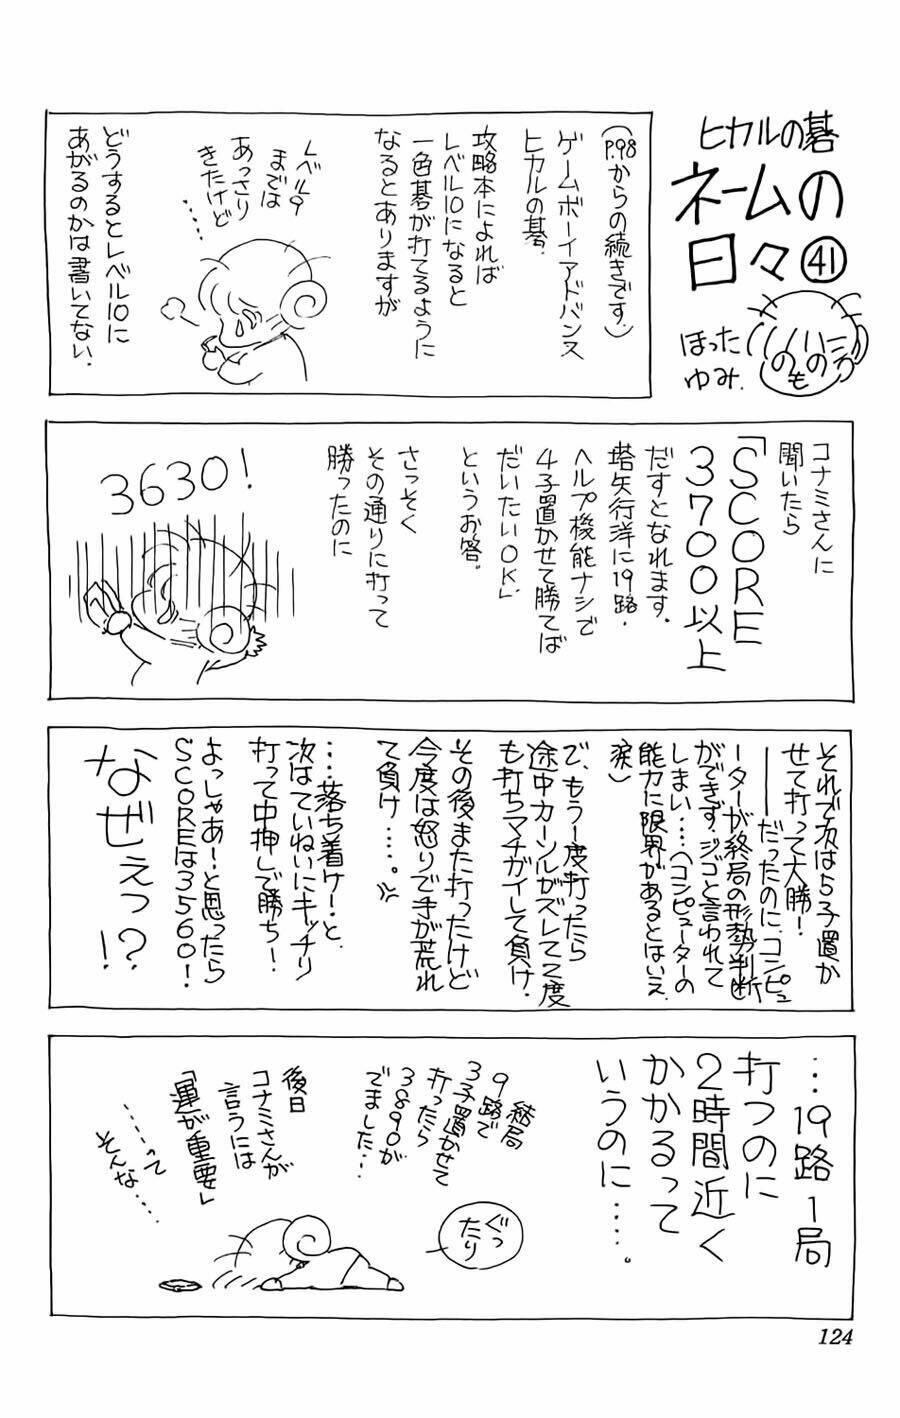 ヒカルの碁
ネームの
日々㊶
ほった
ゆみ.
(P.98からの続きです.)
ゲームボーイアドバンス
ヒカルの碁.
攻略本によれば
レベル10になると
一色碁が打てるように
なるとありますが
レベル9
までは
あっさり
きたけど
・・・・
どうするとレベル10に
あがるのかは書いてない.
コナミさんに
聞いたら
「SCORE
3700以上
だすとなれます.
塔矢行洋に19路.
ヘルプ機能ナシで
4子置かせて勝てば
だいたいOK」
というお答.
さっそく
その通りに打って
勝ったのに
3630!
それで次は5子置か
せて打って大勝!
――だったのに、コンピュ
ーターが終局の形勢判断
ができず、ジゴと言われて
しまい・・・・(コンピューターの
能力に限界があるとはいえ
涙)
で、もう1度打ったら
途中カーソルがズレて2度
も打ちマチガイして負け.
その後また打ったけど
今度は怒りで手が荒れ
て負け・・・・。
・・・・落ち着け!と、
次はていねいにキッチリ
打って中押しで勝ち!
よっしゃあ!と思ったら
SCOREは3560!
なぜぇっ!?
・・・19路1局
打つのに
2時間近く
かかるって
いうのに・・・・・。
結局
9路で
3子置かせて
打ったら
3890が
でました・・・
ぐっ
たり
後日
コナミさんが
言うには
「運が重要」
・・・・・って
そんな・・・・
124